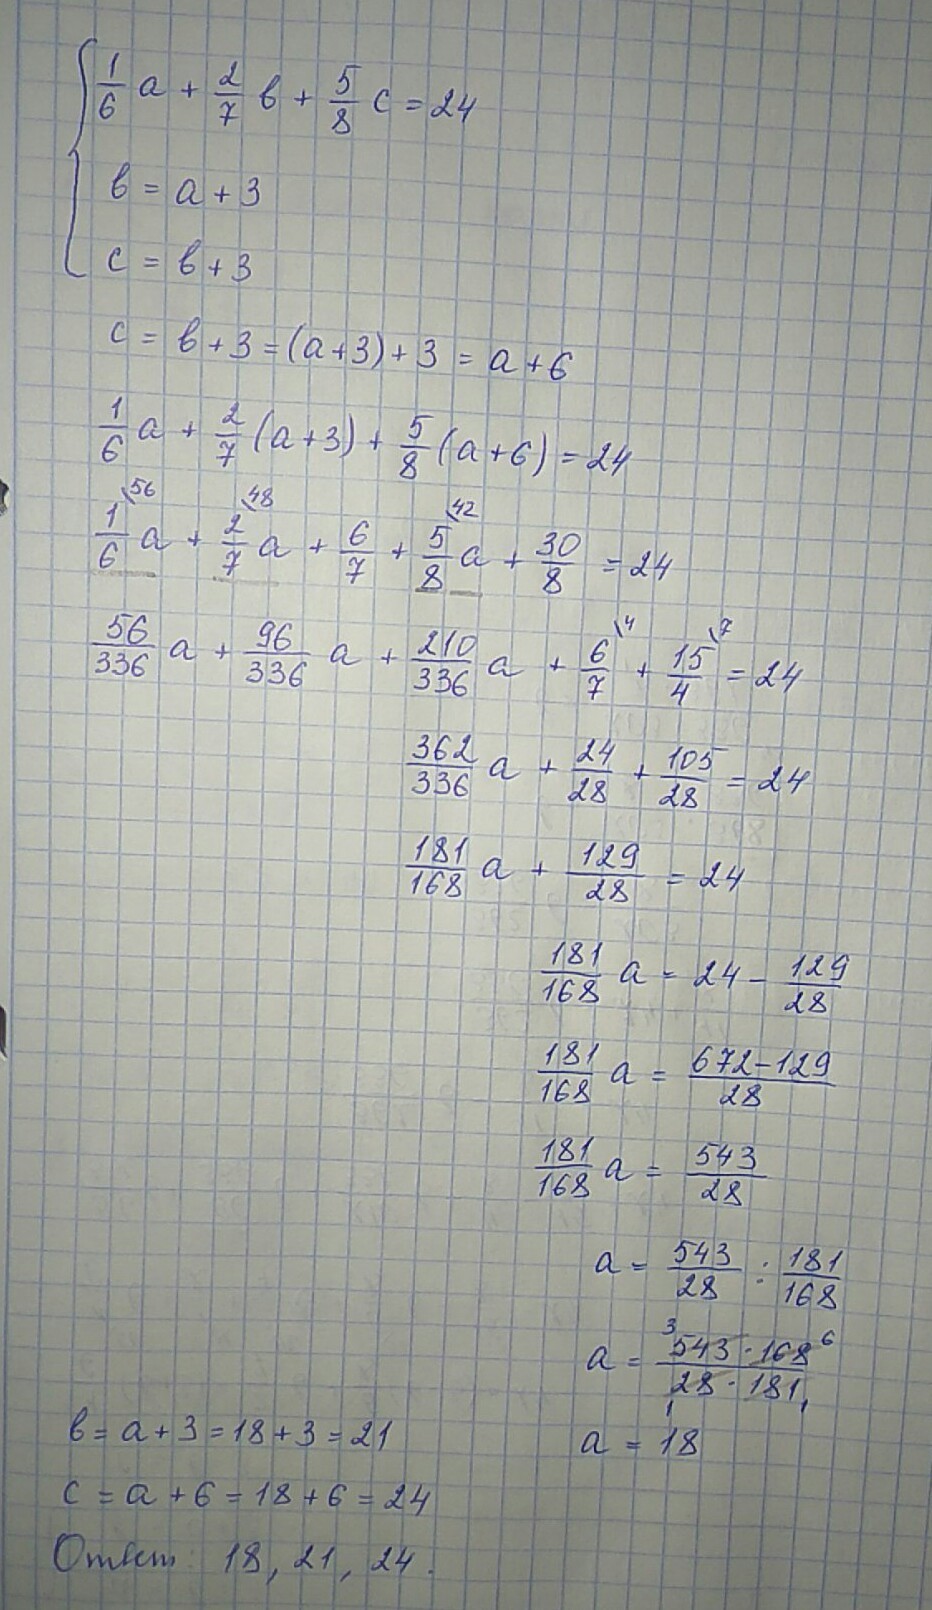 1/6 a + 2/7 в + 5/8 c = 24
в = a + 3
c = в + 3
c = в + 3 = (a + 3) + 3 = a + 6
1/6 a + 2/7 (a + 3) + 5/8 (a + 6) = 24
1/6 \56 a + 2/7 \48 a + 6/7 + 5/8 \42 a + 30/8 = 24
56/336 a + 96/336 a + 210/336 a + 6/7 \4 + 15/4 \7 = 24
362/336 a + 24/28 + 105/28 = 24
181/168 a + 129/28 = 24
181/168 a = 24 - 129/28
181/168 a = (672 - 129)/28
181/168 a = 543/28
a = 543/28 : 181/168
a = (3 543 · 168 6)/(28 1 · 181 1)
в = a + 3 = 18 + 3 = 21
a = 18
c = a + 6 = 18 + 6 = 24
Ответ: 18, 21, 24.